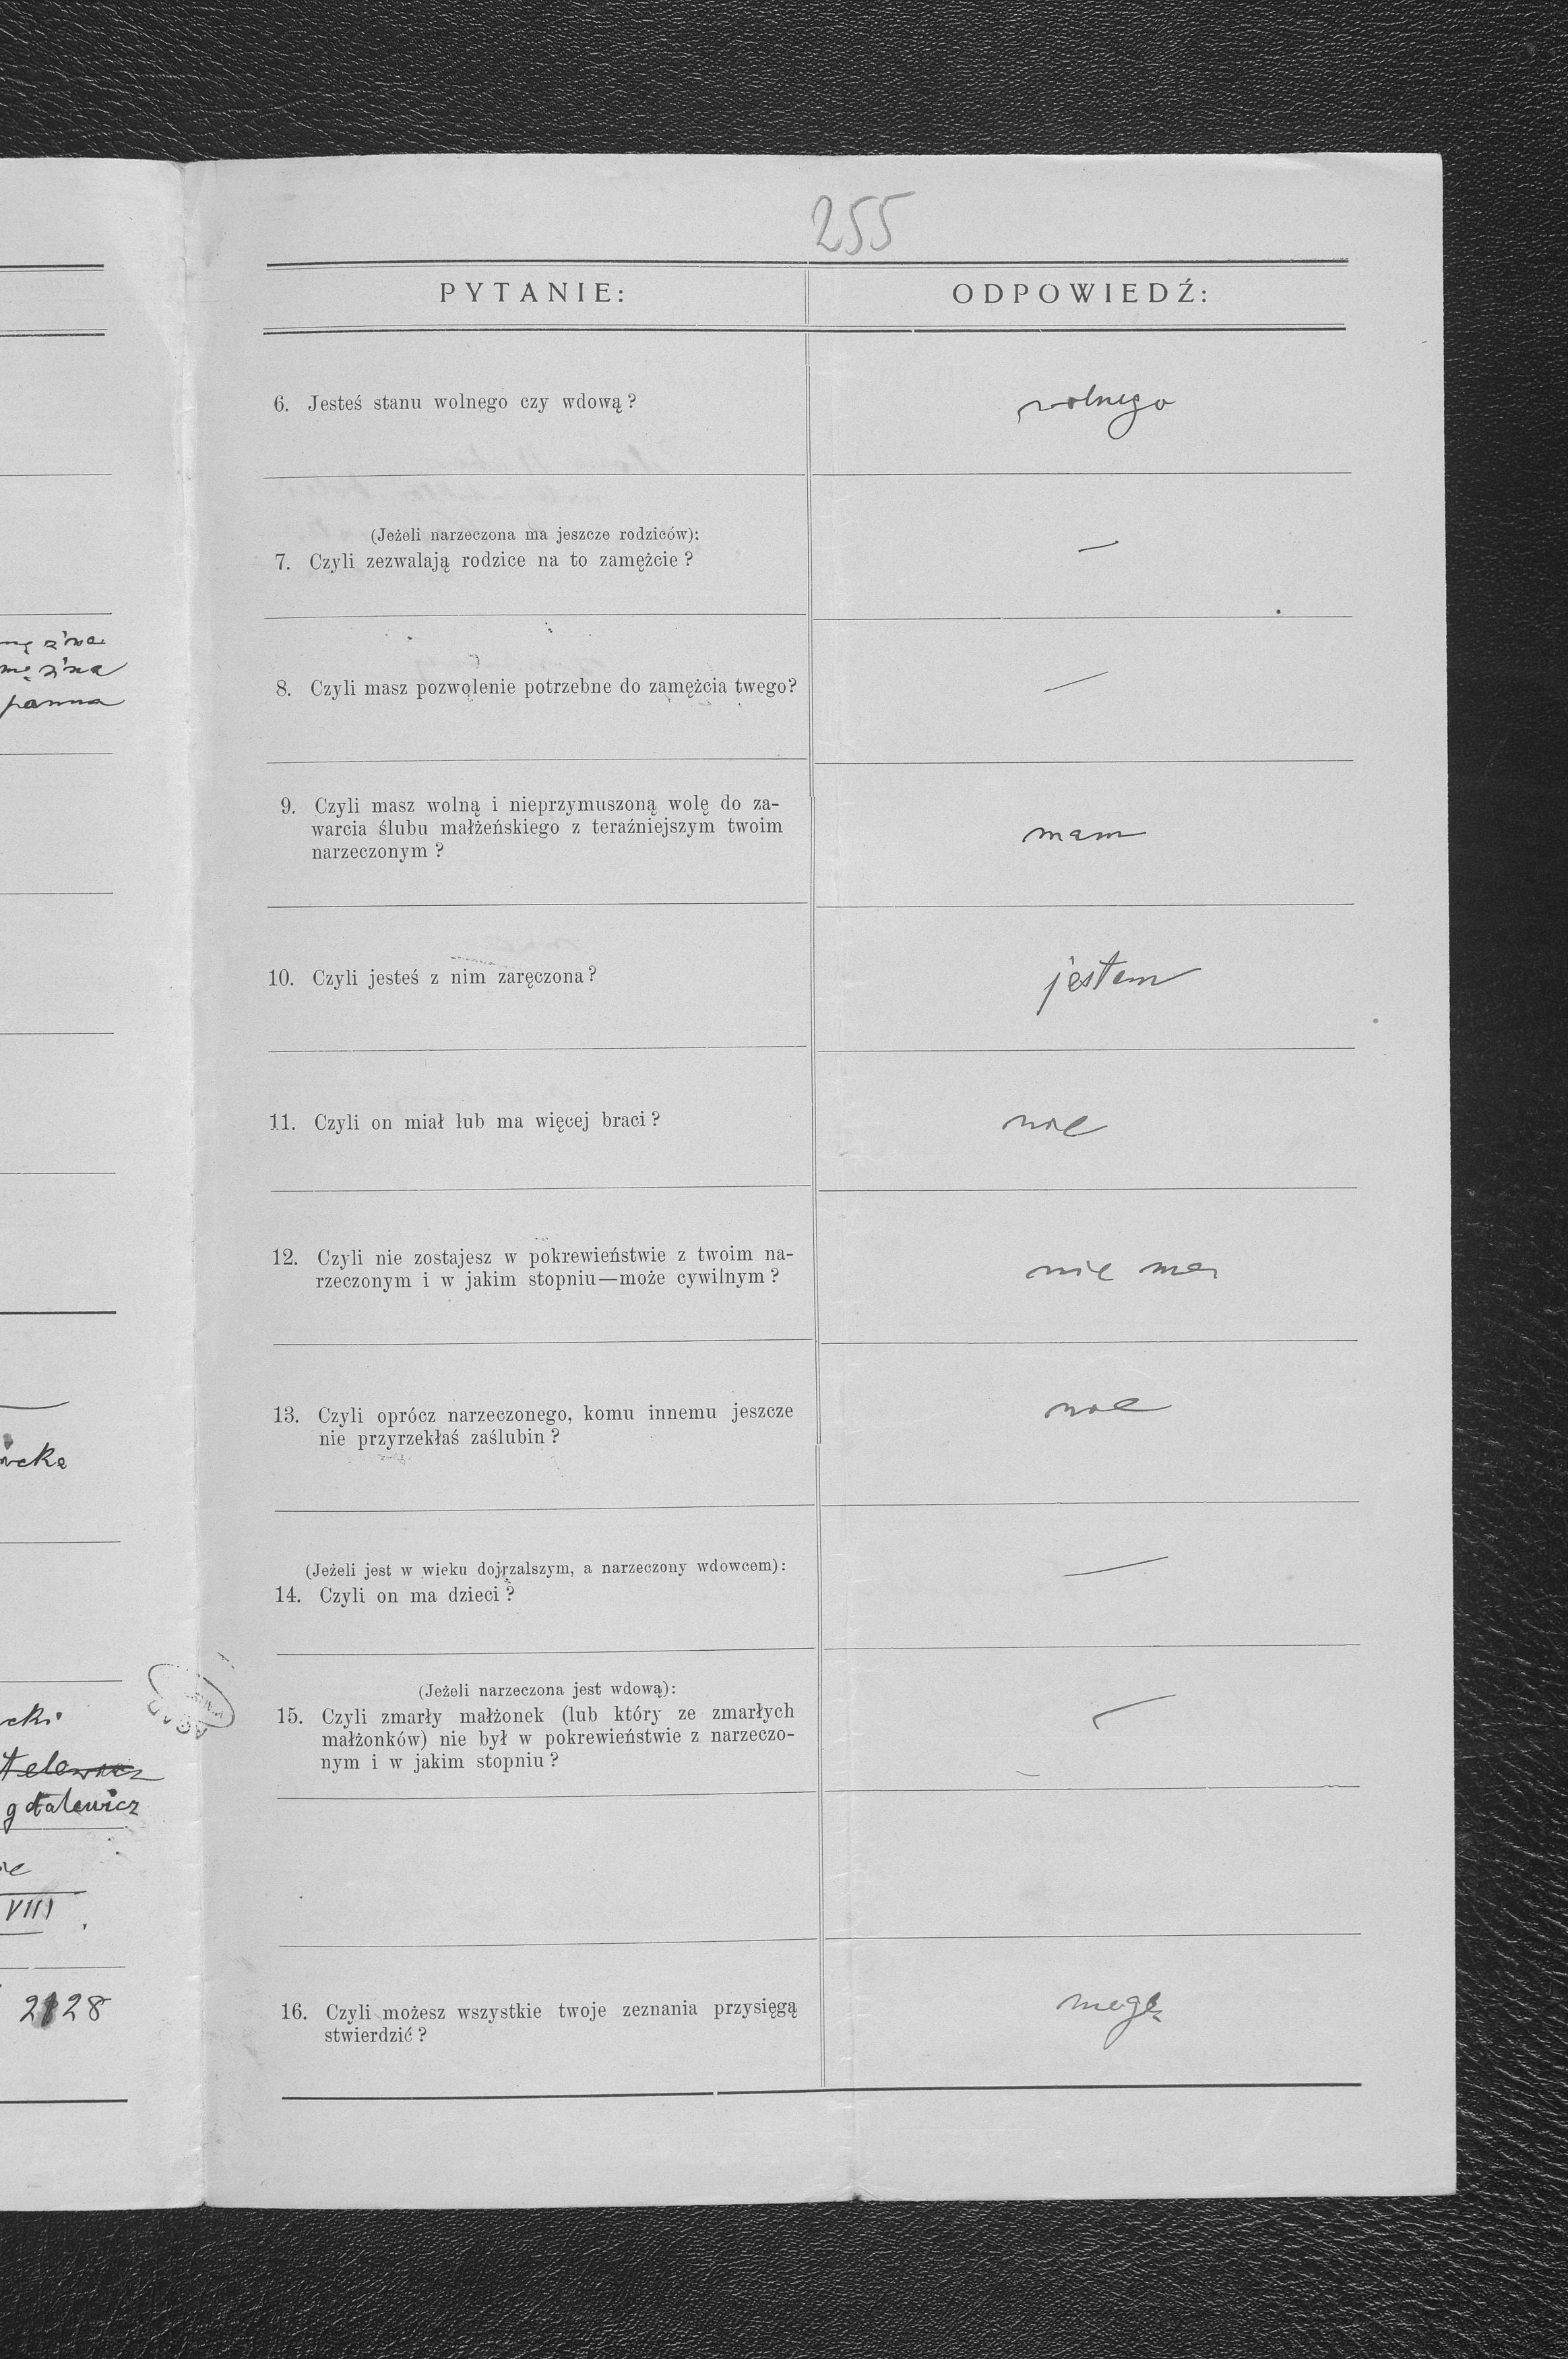 255
PYTANIE:
ODPOWIEDŹ:
6. Jesteś stanu wolnego czy wdową?
wolnego
(Jeżeli narzeczona ma jeszcze rodziców):
7. Czyli zezwalają rodzice na to zamężcie?
—
8. Czyli masz pozwolenie potrzebne do zamężcia twego?
—
9. Czyli masz wolną i nieprzymuszoną wolę do za-
warcia ślubu małżeńskiego z teraźniejszym twoim
narzeczonym?
mam
10. Czyli jesteś z nim zaręczona?
jestem
11. Czyli on miał lub ma więcej braci?
nie
12. Czyli nie zostajesz w pokrewieństwie z twoim na-
rzeczonym i w jakim stopniu—może cywilnym?
nie ma
13. Czyli oprócz narzeczonego, komu innemu jeszcze
nie przyrzekłaś zaślubin?
nie
(Jeżeli jest w wieku dojrzalszym, a narzeczony wdowcem):
14. Czyli on ma dzieci?
—
(Jeżeli narzeczona jest wdową):
15. Czyli zmarły małżonek (lub który ze zmarłych
małżonków) nie był w pokrewieństwie z narzeczo-
nym i w jakim stopniu?
—
16. Czyli możesz wszystkie twoje zeznania przysięgą
stwierdzić?
mogę
panna
cki
gdalewicz
VIII
28